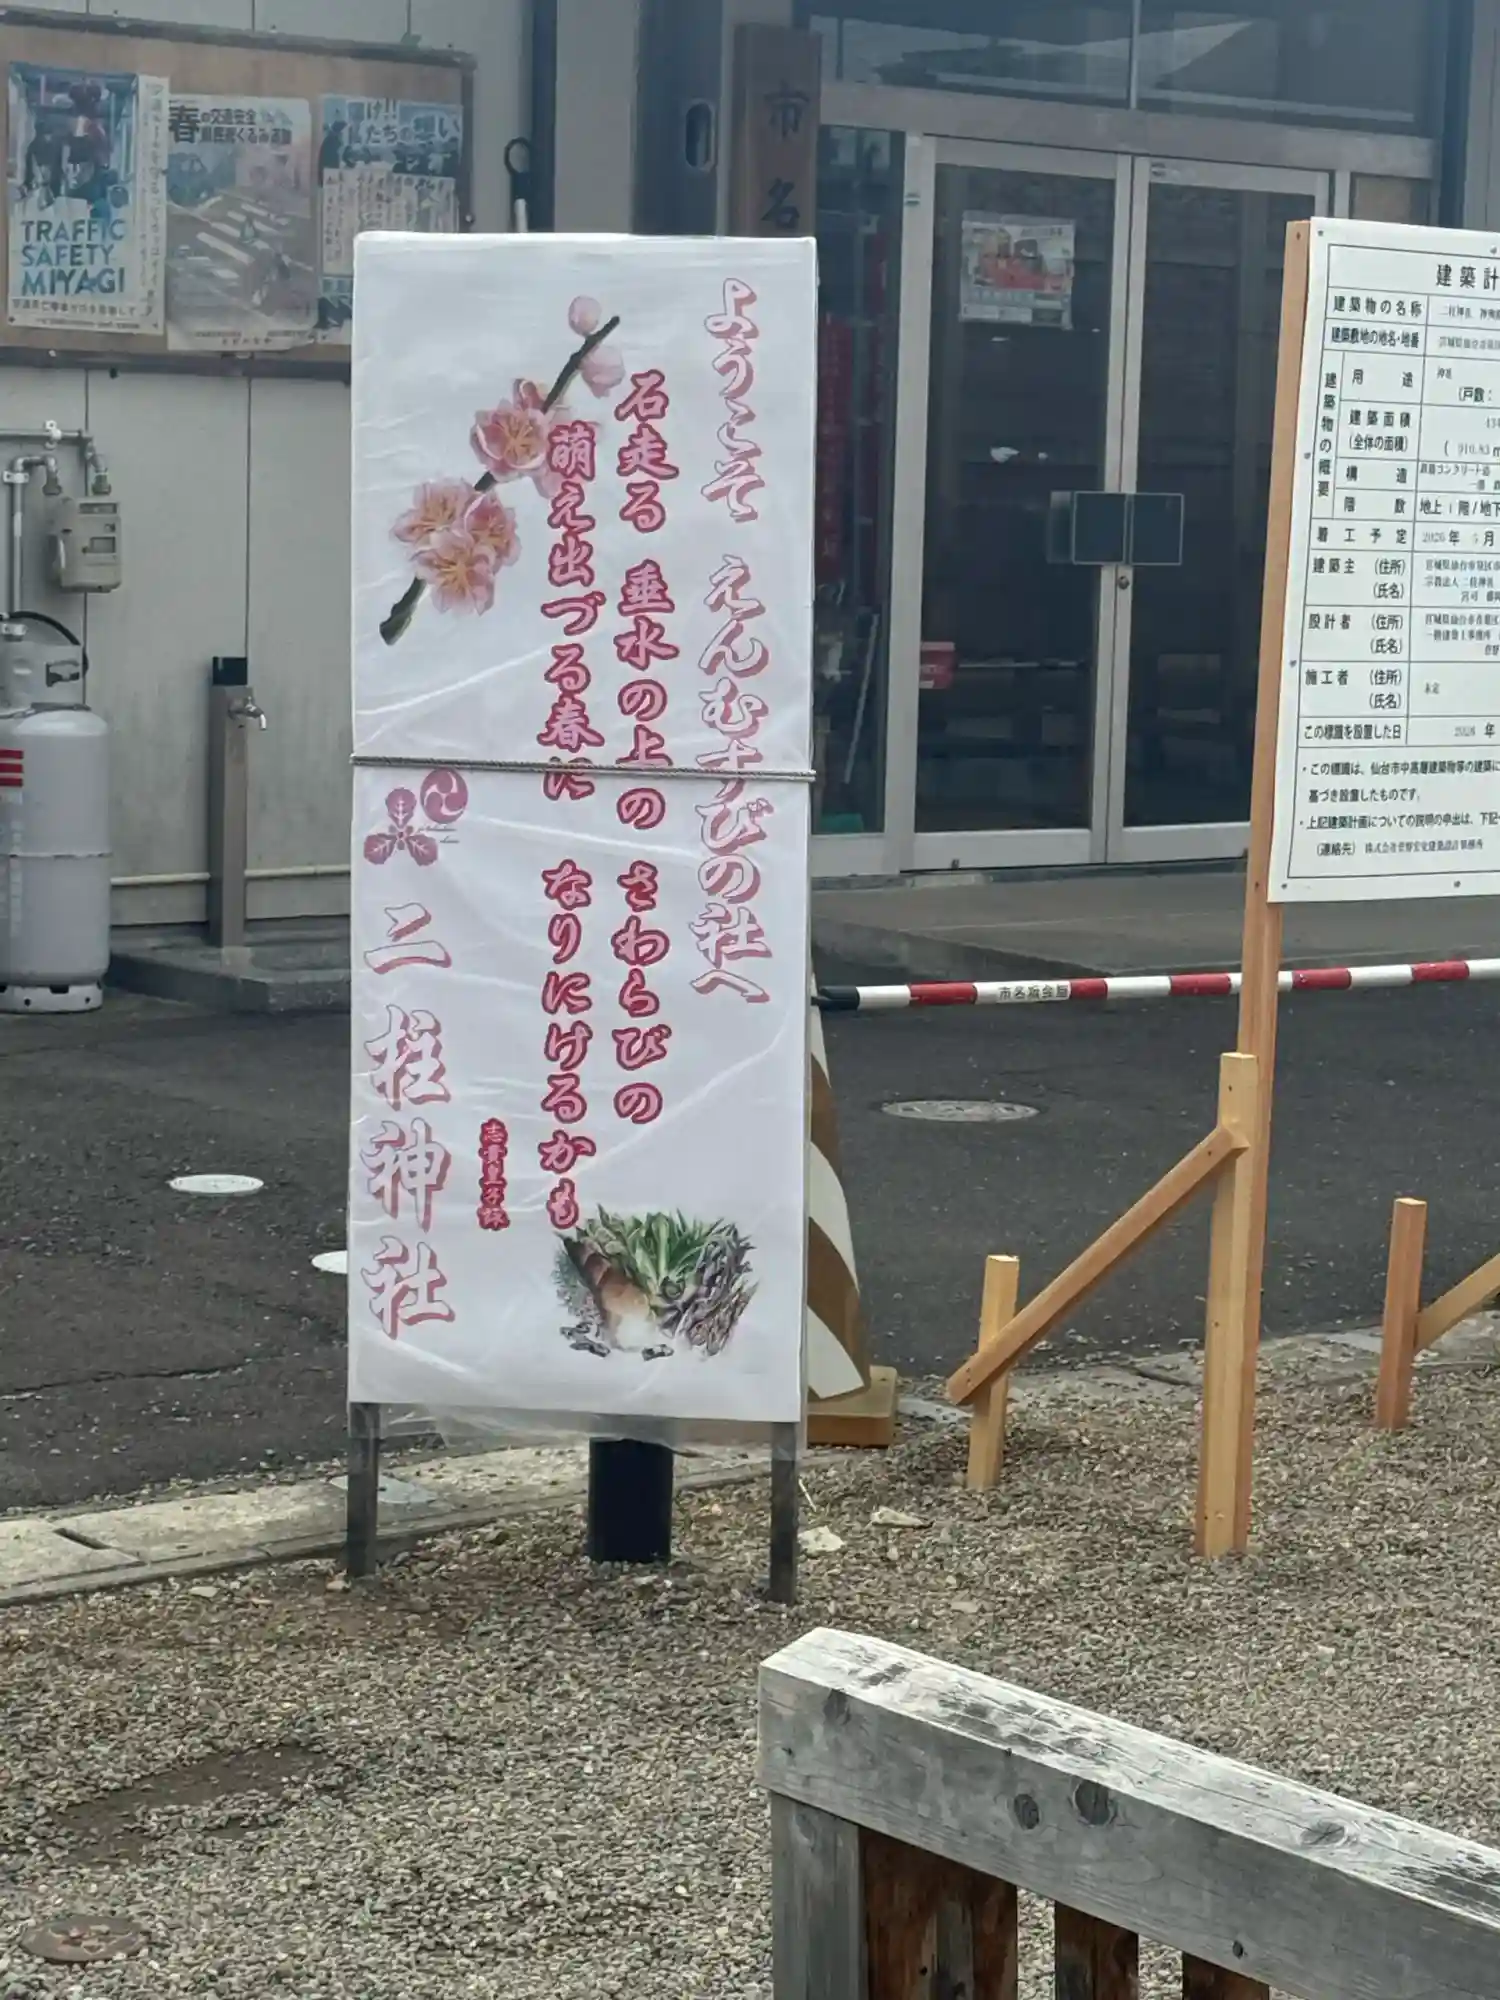 ようこそ えんむすびの社へ
石走る 垂水の上の さわらびの
萌え出づる春に なりにけるかも
志貴皇子詠
二柱神社
市名
TRAFFIC
SAFETY
MIYAGI
春の交通安全
県民総ぐるみ運動
届け!!
私たちの想い
市名坂会館
建築計
建築物の名称
建築敷地の地名・地番
建築物の概要
用途
神社
(戸数:
建築面積
(全体の面積)
構造
階数
地上1階/地下
着工予定
2026年5月
建築主 (住所)
(氏名)
設計者 (住所)
(氏名)
施工者 (住所)
(氏名)
未定
この標識を設置した日
年
・この標識は、仙台市中高層建築物等の建築に
基づき設置したものです。
・上記建築計画についての説明の申出は、下記
(連絡先)